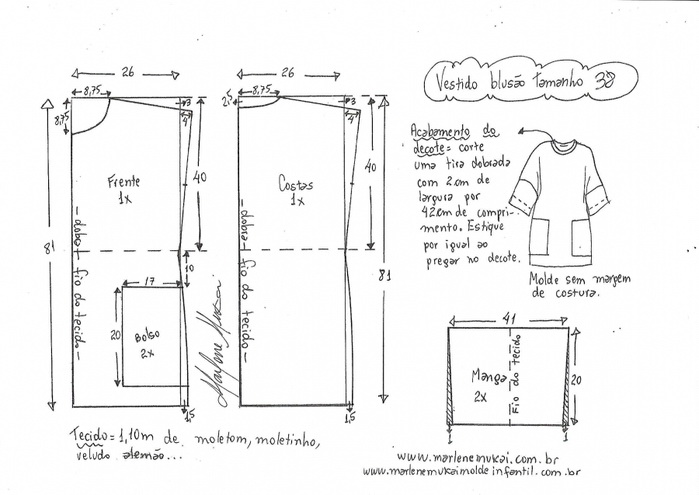 Vestido blusão tamanho 38
26
8,75
8,75
3
4
40
Frente
1x
81
-dobra- fio do tecido-
10
17
20
Bolso
2x
1,5
Marlene Mukai
26
8,75
2,5
3
4
40
Costas
1x
-dobra- fio do tecido-
81
1,5
Acabamento do
decote= corte
uma tira dobrada
com 2cm de
largura por
42cm de compri-
mento. Estique
por igual ao
pregar no decote.
Molde sem margem
de costura.
41
Manga
2x
Fio do tecido
20
1
1
Tecido= 1,10m de moletom, moletinho,
veludo alemão...
www.marlenemukai.com.br
www.marlenemukaimoldeinfantil.com.br